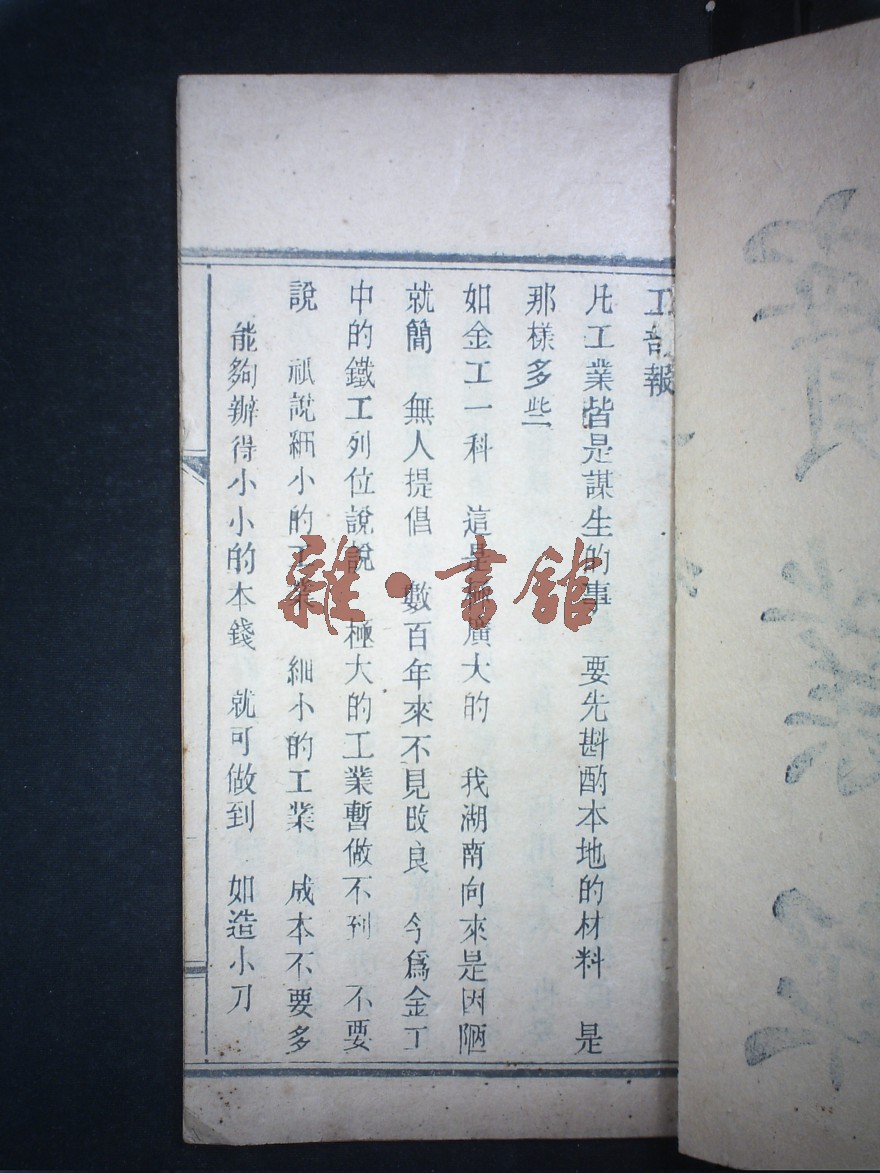 工部報
凡工業皆是謀生的事 要先斟酌本地的材料 是
那樣多些
如金工一科 這是極廣大的 我湖南向來是因陋
就簡 無人提倡 數百年來不見改良 今爲金工
中的鐵工列位說說 極大的工業暫做不到 不要
說 祇說細小的工業 細小的工業 成本不要多
能夠辦得小小的本錢 就可做到 如造小刀
雜·書館